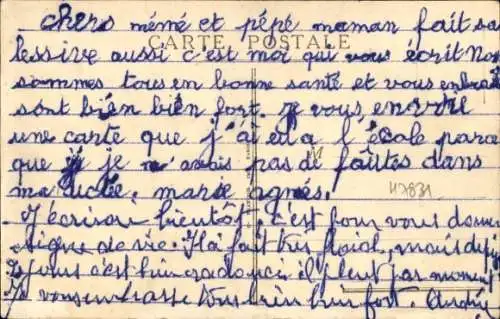 chers mémé et pépé maman fait sa
CARTE POSTALE
lessive aussi c'est moi qui vous écrit Nou
sommes tous en bonne santé et vous enbras
sont bien bien fort. je vous envoie
une carte que j'ai eu a l'école parce
que je n'avais pas de faites dans
ma dictée. marie agnès.
47831
J'écrirai bientôt. c'est pour vous donne
signe de vie. Il a fait très froid, mais
c'est il pleut par moment
Je vous embrasse tous bien bien fort. André